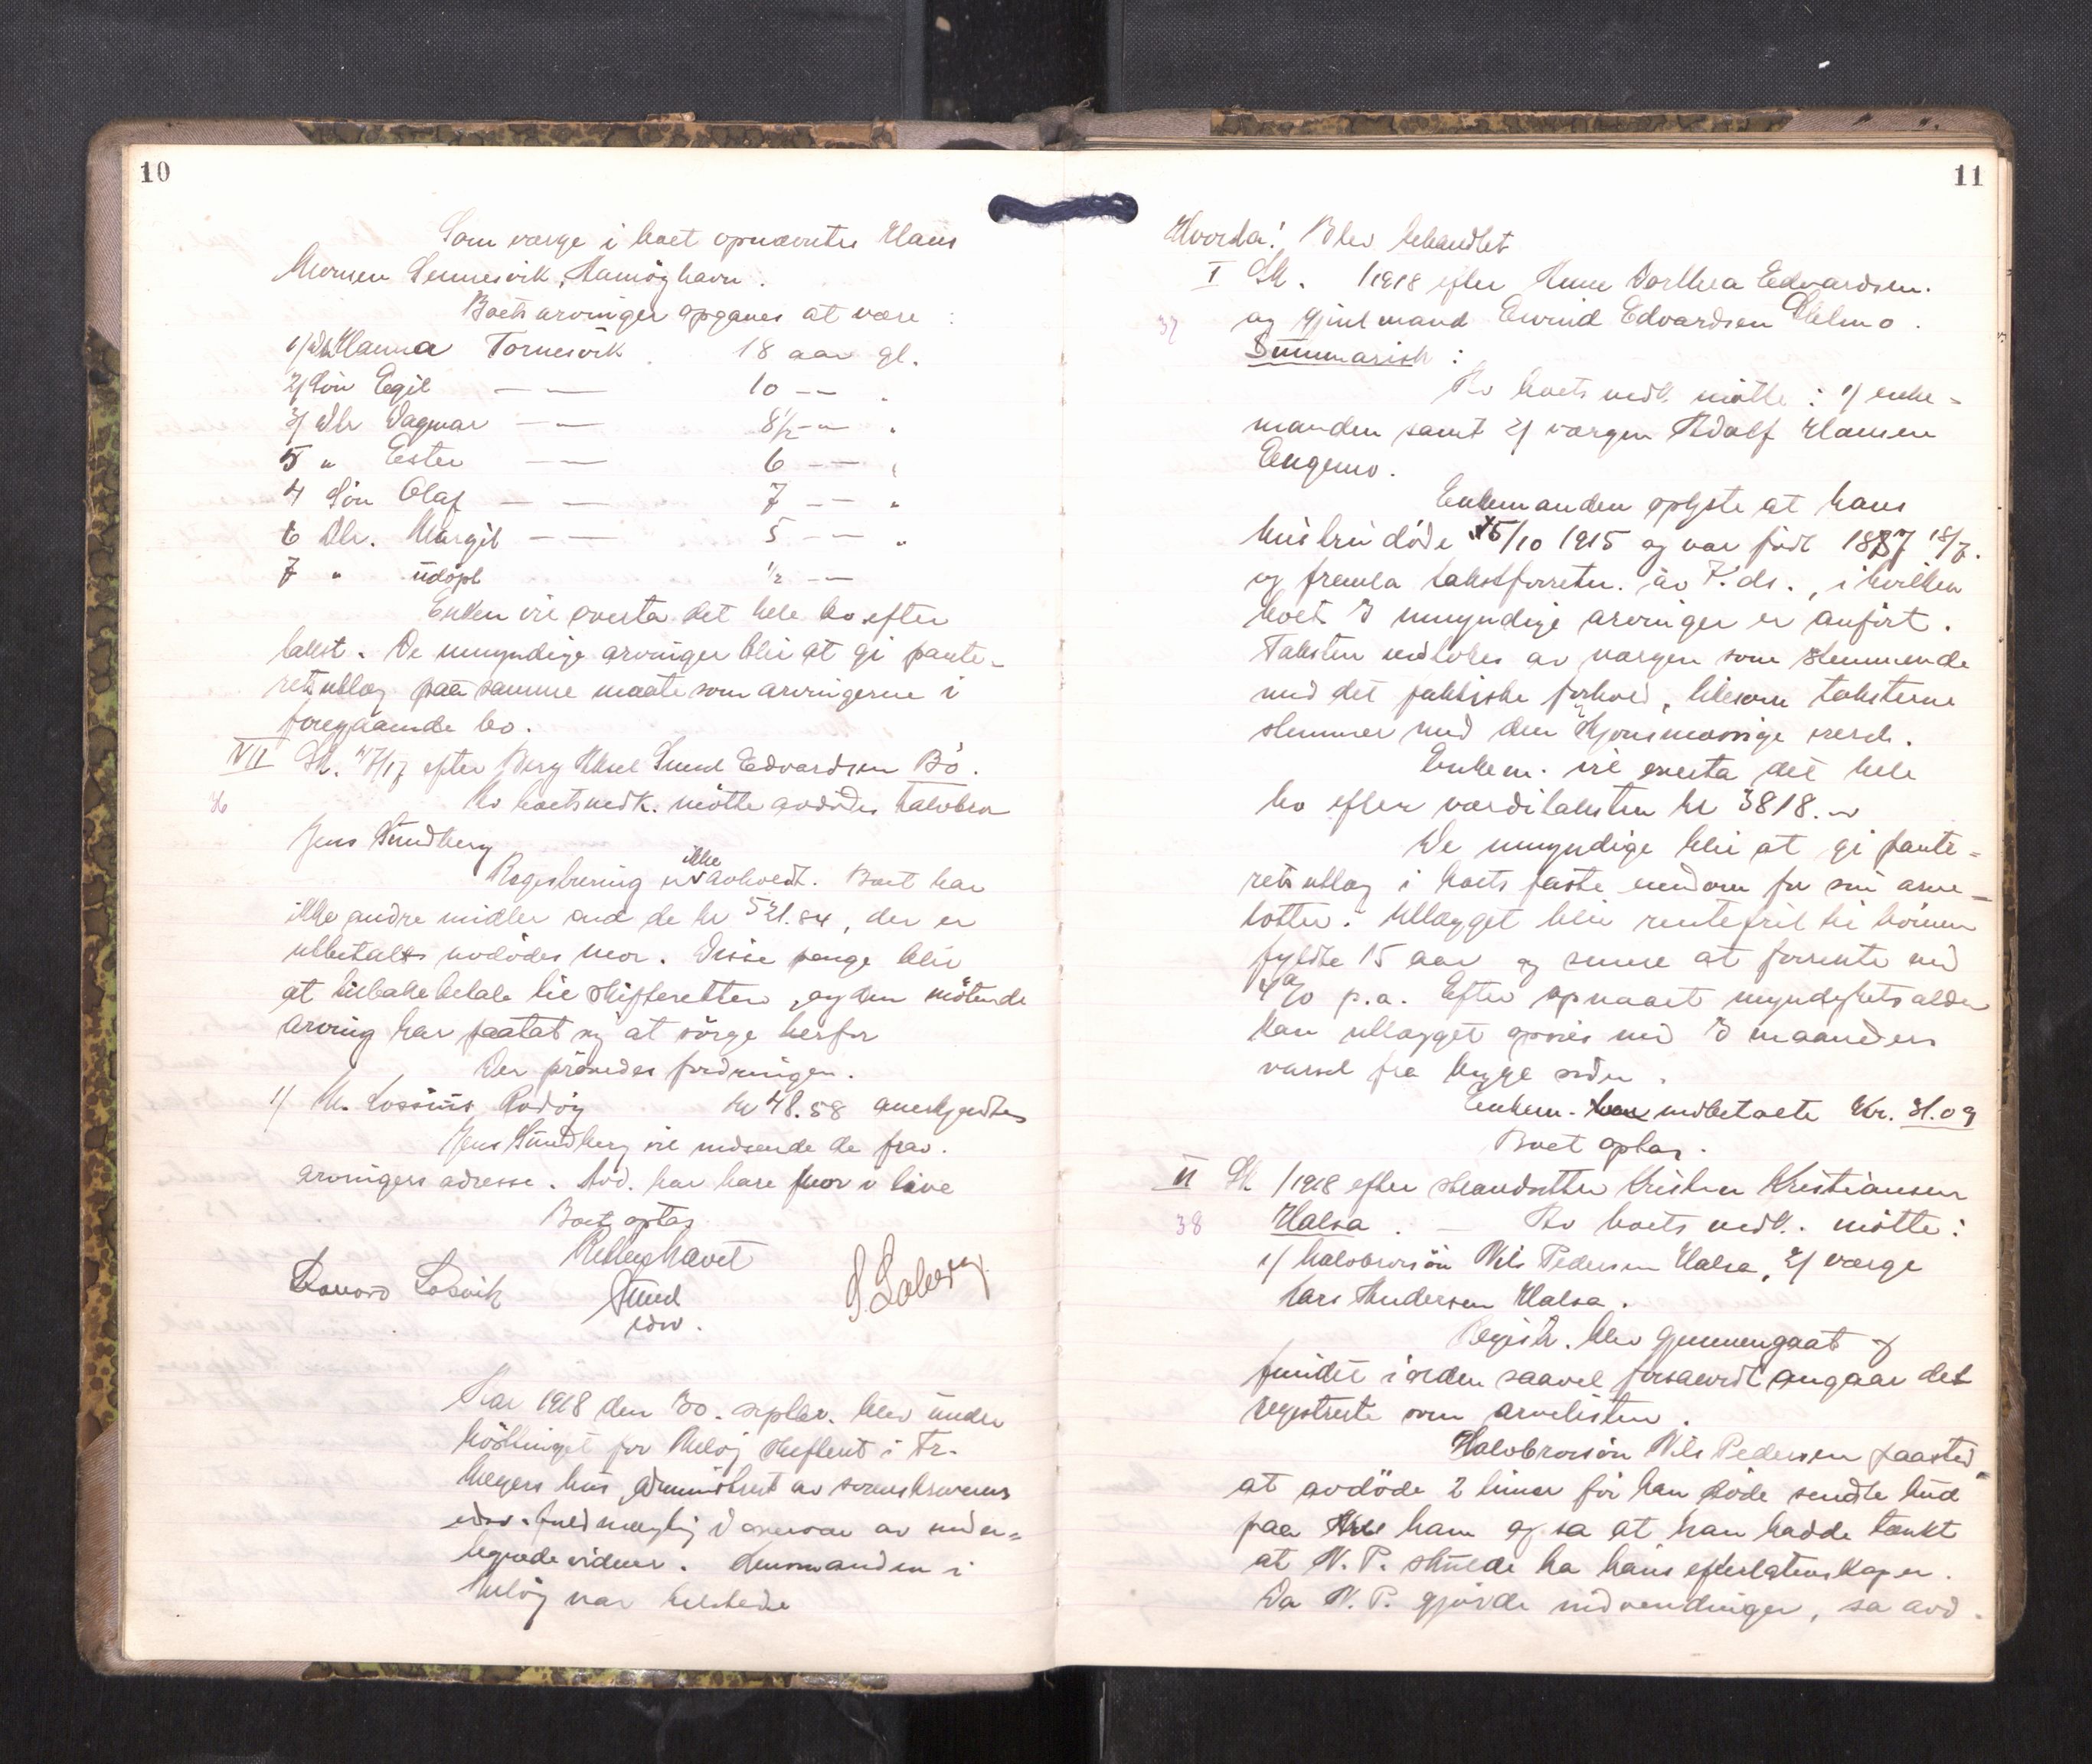 10
Som værge i boet opnævntes Hans
Monsen Sennesvik, Støtt havn.
Boets arvinger opgaves at være :
1/ Dtr Hanna Tornesvik 18 aar gl.
2/ Søn Egil — — 10 — "
3/ Dtr Dagmar — — 8½ — "
5 " Ester — — 6 — "
4 Søn Olaf — — 7 — "
6 Dtr. Margit — — 5 — "
7 " udøpt ½ —
Enken vil overta det hele bo efter
takst. De umyndige arvinger blir at gi pante-
retsutlæg paa samme maate som arvingerne i
foregaaende bo.
VII Sk. 7/17 efter Berg Edvardsen Bø.
36 Av boets vedk. møtte avdødes halvbror
Jens Sundberg
Registrering er ikke avholdt. Boet har
ikke andre midler end de kr 521.84, der er
utbetalt avdødes mor. Disse penge blir
at tilbakebetale til skifteretten, og den møtende
arving har paatat sig at sørge herfor
Der prøvedes fordringen.
1/ Lossius Rødøy kr 48.58 anerkjendtes
Jens Sundberg vil indsende de frav.
arvingers adresse. Avd. har bare mor i live
Boet optas
Retten hævet
Edvard Losvik Sund S. Solberg
edsv.
Aar 1918 den 30. septbr. blev under
høsttinget for Meløy skifteret i Fr.
Meyers hus, administrert av sorenskriverens
edsv. fuldmægtig i overvær av under-
tegnede vidner. Lensmanden i
Meløy var tilstede
11
Hvorda! Blev behandlet
I Sk. /1918 efter Anne Dorthea Edvardsen.
37 og gjenl mand Eivind Edvardsen
Summarisk :
Av boets vedk. møtte : 1/ enke-
manden samt 2/ værgen Adolf Hansen
Engemo.
Enkemanden oplyste at hans
hustru døde 15/10 1915 og var født 1887 18/7.
og fremla takstforretn. av 7. ds., i hvilken
boets 3 umyndige arvinger er anført.
Taksten vedtokes av værgen som stemmende
med det faktiske forhold, likesom taksterne
stemmer med den skjønsmæssige værdi.
Enkem. vil overta det hele
bo efter værditaksten kr 3818.—
De umyndige blir at gi pante-
retsutlæg i boets faste eiendom for sine arve-
lotter. Utlægget blir rentefrit til børnenes
fyldte 15 aar og senere at forrente med
4% p.a. Efter opnaaet myndighetsalder
kan utlægget opsies med 3 maaneders
varsel fra begge sider.
Enkem. indbetalte Kr. 31.09
Boet optas.
II Sk /1918 efter Kristen Kristiansen
38 Halsa. — Av boets vedk. møtte :
1/ halvbrorsøn Nils Pedersen Halsa, 2/ værge
Lars Andersen Halsa.
Registr. blev gjennemgaat &
fundet i orden saavel forsaavidt angaar det
registrerte som arvelisten.
Halvbrorsøn Nils Pedersen paasted
at avdøde 2 timer før han døde sendte bud
paa ham og sa at han hadde tænkt
at N. P. skulde ha hans efterlatenskaper.
Da N. P. gjorde indvendinger, sa avd.